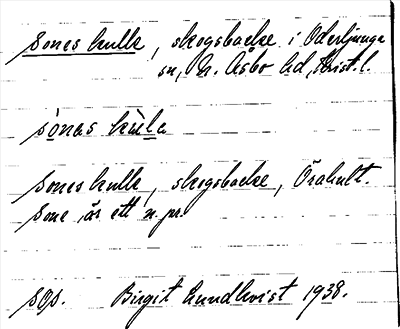 Sones kulle, skogsbacke i Oderljunga
sn, N. Åsbo hd, Krist. l.
sónas kùla
Sones kulle, skogsbacke, Örahult.
Sone är ett n. pr.
sgs. Birgit Lundkvist 1938.